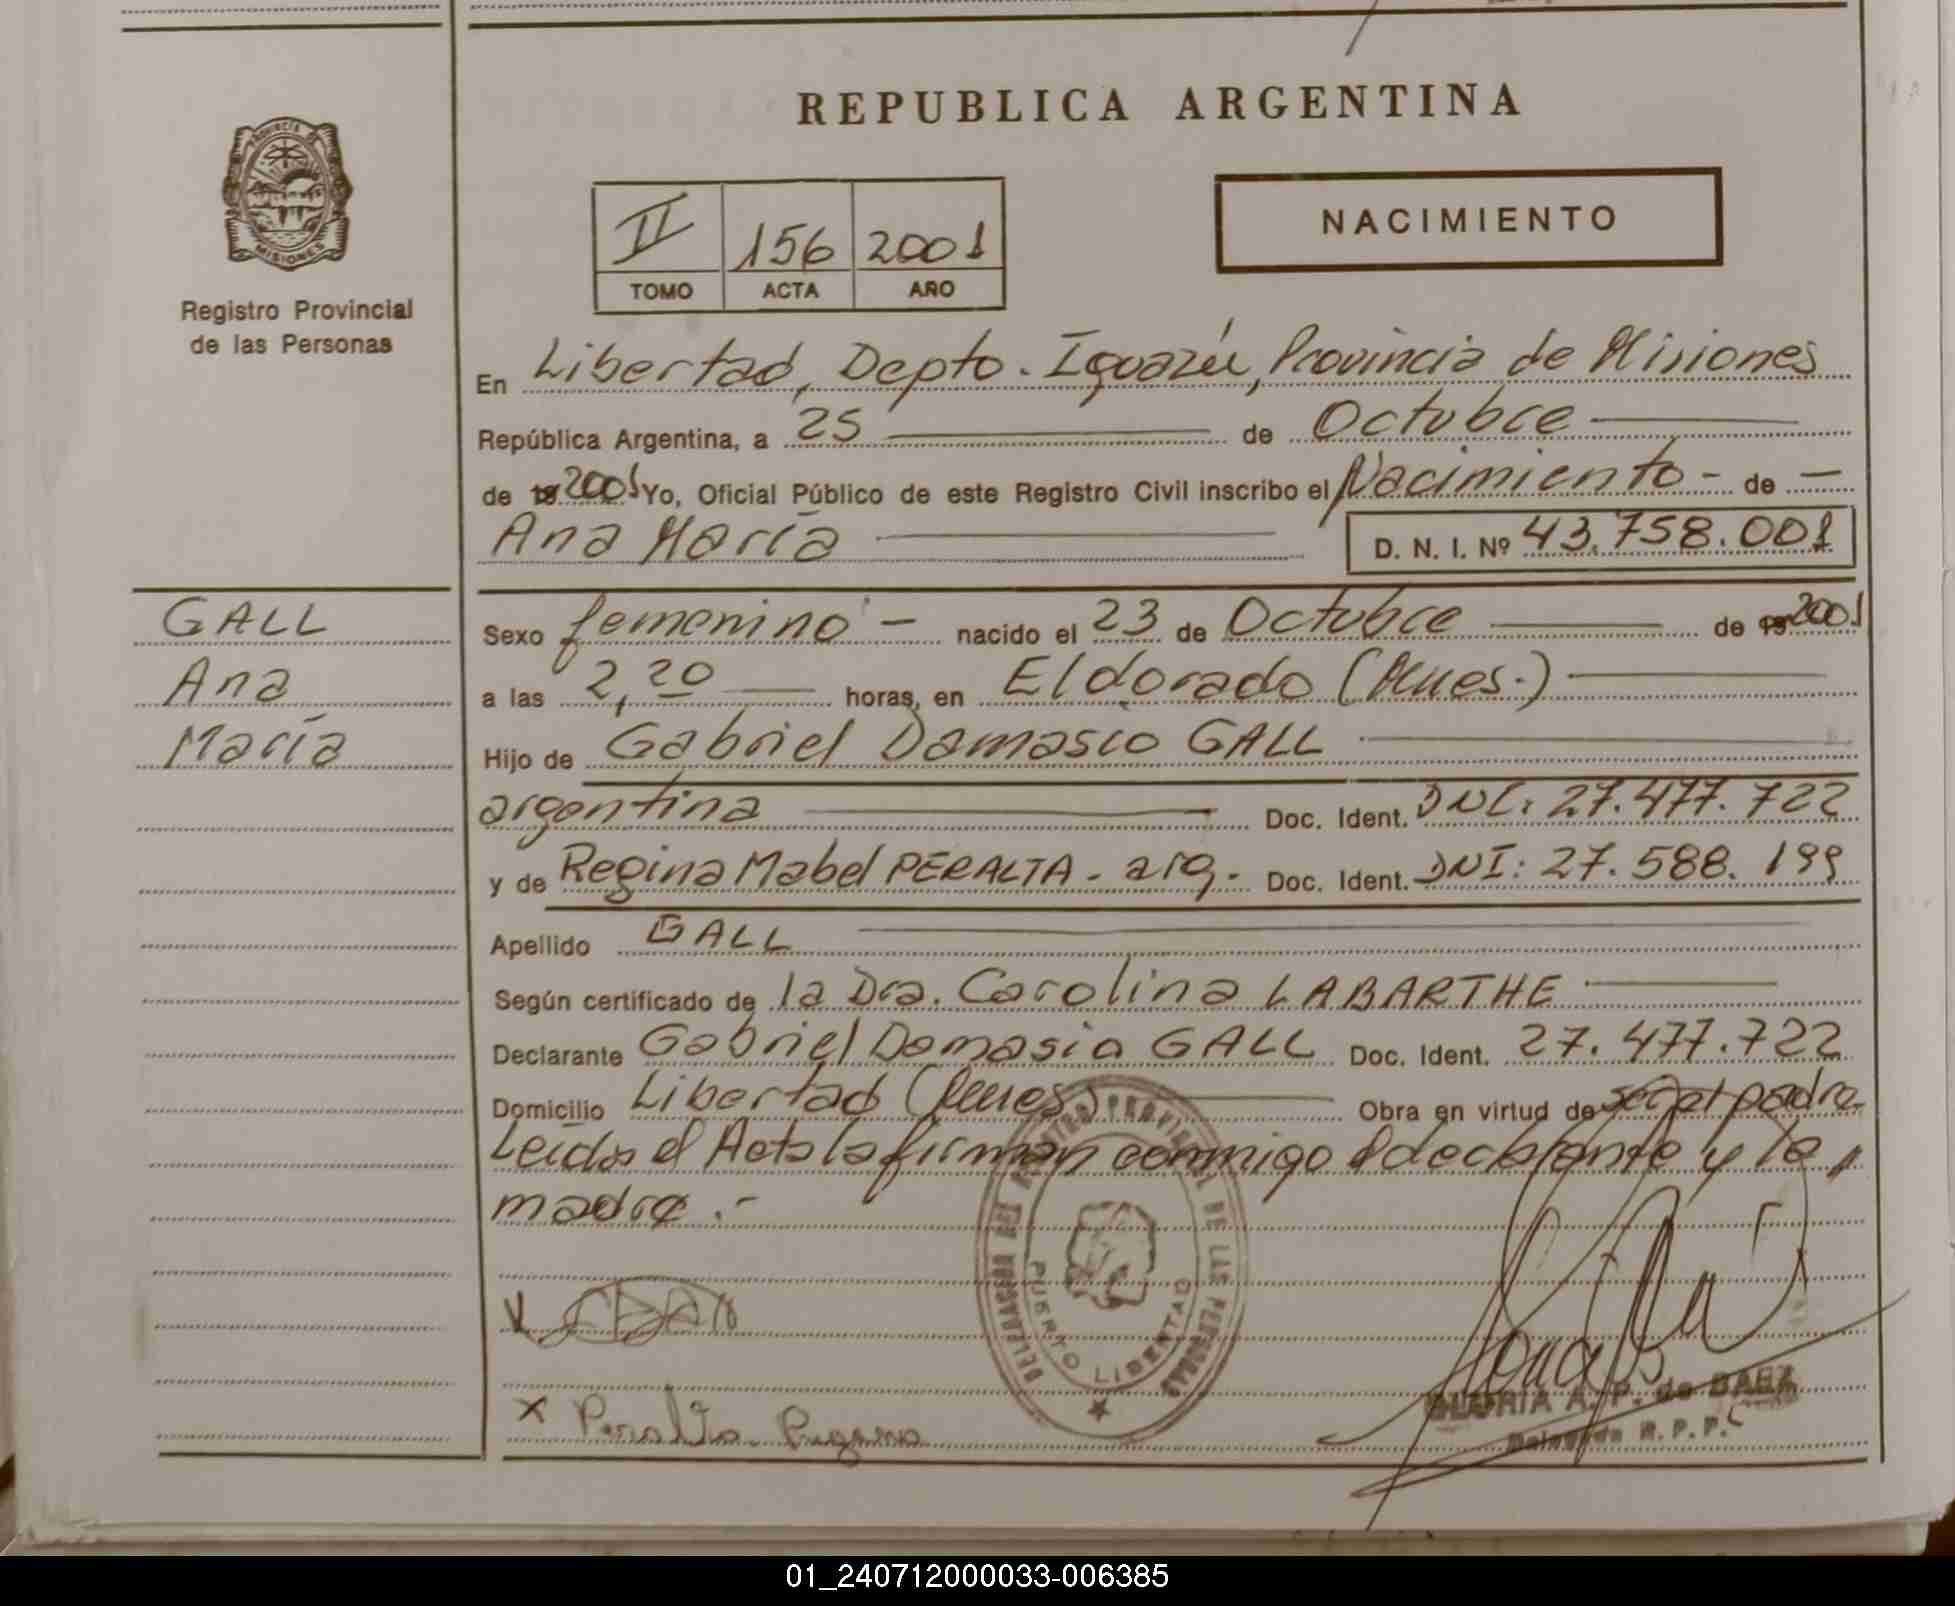 REPUBLICA ARGENTINA
PROVINCIA DE
MISIONES
Registro Provincial
de las Personas
II 156 2001
TOMO ACTA AÑO
NACIMIENTO
En Libertad, Depto. Iguazú, Provincia de Misiones
República Argentina, a 25 de Octubre
de 19 2001 Yo, Oficial Público de este Registro Civil inscribo el Nacimiento - de -
Ana María D. N. I. Nº 43.758.001
GALL
Ana
María
Sexo femenino - nacido el 23 de Octubre de 19 2001
a las 2,20 horas, en Eldorado (Mnes.)
Hijo de Gabriel Damasio GALL
argentina Doc. Ident. DNI: 27.477.722
y de Regina Mabel PERALTA - arg. - Doc. Ident. DNI: 27.588.199
Apellido GALL
Según certificado de la Dra. Carolina LABARTHE
Declarante Gabriel Damasio GALL Doc. Ident. 27.477.722
Domicilio Libertad (Mnes) Obra en virtud de ser el padre
Leída el Acta la firman conmigo el declarante y la
madre.-
DELEGACION DEL REGISTRO PROVINCIAL DE LAS PERSONAS
PUERTO LIBERTAD
x Peralta Regina
GLORIA A. P. de BAEZ
Delegada R. P. P.
01_240712000033-006385